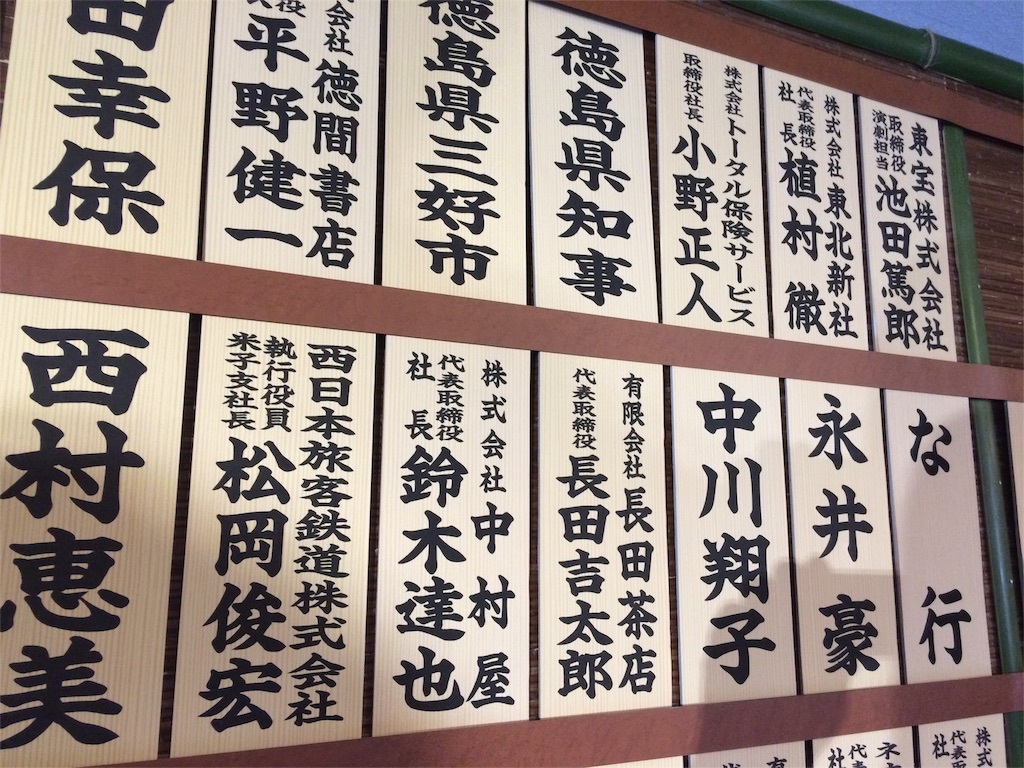 東宝株式会社
取締役
演劇担当
池田篤郎
株式会社東北新社
代表取締役
社長
植村徹
株式会社トータル保険サービス
取締役社長
小野正人
徳島県知事
徳島県三好市
会社徳間書店
平野健一
田幸保
な行
永井豪
中川翔子
有限会社長田茶店
代表取締役
長田吉太郎
株式会社中村屋
代表取締役
社長
鈴木達也
西日本旅客鉄道株式会社
執行役員
米子支社長
松岡俊宏
西村恵美
株式
代表取締役
社